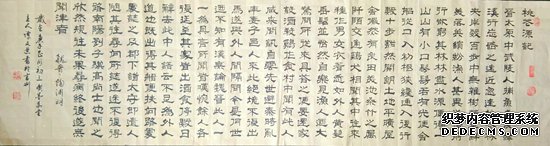 桃花源記
晉太原中武陵人捕魚為業緣
溪行忘路之遠近忽逢桃花林夾
岸數百步中無雜樹芳草鮮
美落英繽紛漁人甚異之復前
行欲窮其林林盡水源便得一
山山有小口仿佛若有光便舍
船從口入初極狹才通人復行
數十步豁然開朗土地平曠屋
舍儼然有良田美池桑竹之屬
阡陌交通雞犬相聞其中往來
種作男女衣著悉如外人黃髮
垂髫并怡然自樂見漁人乃大
驚問所從來具答之便要還家
設酒殺雞作食村中聞有此人
咸來問訊自云先世避秦時亂
率妻子邑人來此絕境不復出
焉遂與外人間隔問今是何世
乃不知有漢無論魏晉此人一
一為具言所聞皆嘆惋餘人各
復延至其家皆出酒食停數日
辭去此中人語云不足為外人
道也既出得其船便扶向路
處處志之及郡下詣太守說如此太守即遣人
隨其往尋向所志遂迷不復得
路南陽劉子驥高尚士也聞之
欣然規往未果尋病終後遂無
問津者 魏晉 陶淵明